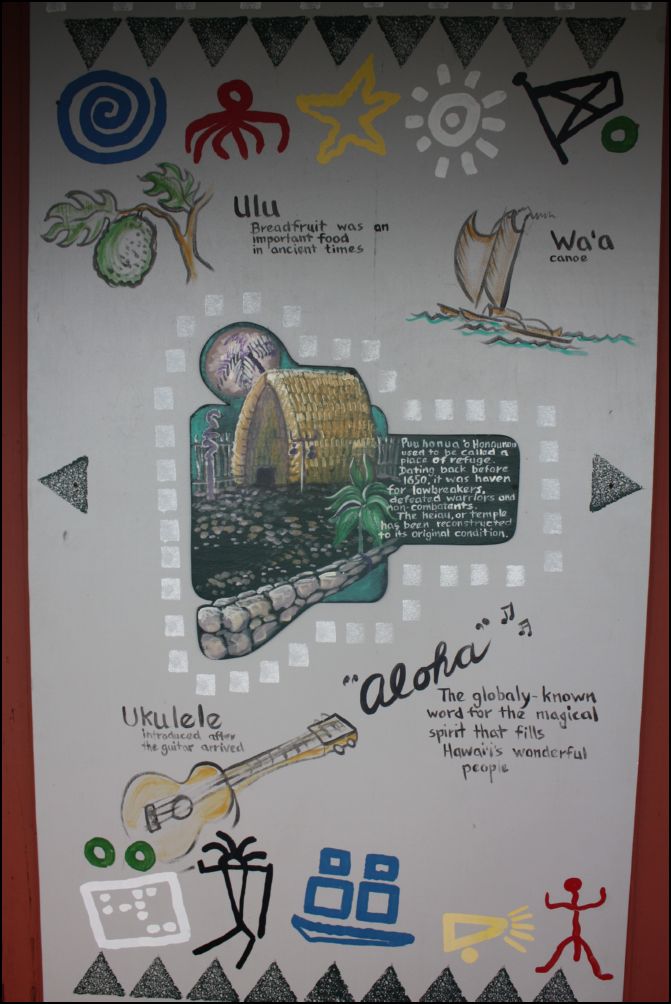 Ulu
Breadfruit was an
important food
in ancient times
Wa'a
canoe
Puu honua 'o Honaunau
used to be called a
place of refuge.
Dating back before
1650, it was haven
for lawbreakers,
defeated warriors and
non-combatants.
The heiau, or temple
has been reconstructed
to its original condition.
"Aloha"
The globaly-known
word for the magical
spirit that fills
Hawaii's wonderful
people
Ukulele
introduced after
the guitar arrived